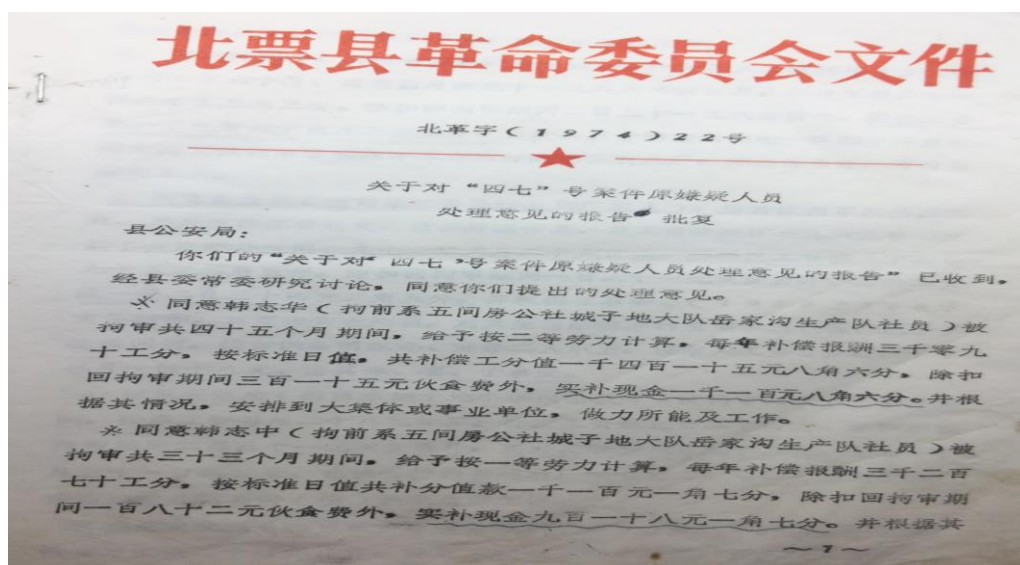 北票县革命委员会文件
北革字(1974)22号
关于对“四七”号案件原嫌疑人员
处理意见的报告 批复
县公安局:
你们的“关于对“四七”号案件原嫌疑人员处理意见的报告”已收到,
经县委常委研究讨论,同意你们提出的处理意见。
※同意韩志华(拘前系五间房公社城子地大队岳家沟生产队社员)被
拘审共四十五个月期间,给予按二等劳力计算,每年补偿报酬三千零九
十工分,按标准日值,共补偿工分值一千四百一十五元八角六分,除扣
回拘审期间三百一十五元伙食费外,实补现金一千一百元八角六分。并根
据其情况,安排到大集体或事业单位,做力所能及工作。
※同意韩志中(拘前系五间房公社城子地大队岳家沟生产队社员)被
拘审共三十三个月期间,给予按一等劳力计算,每年补偿报酬三千二百
七十工分,按标准日值共补分值款一千一百元一角七分,除扣回拘审期
间一百八十二元伙食费外,实补现金九百一十八元一角七分。并根据其
~1~